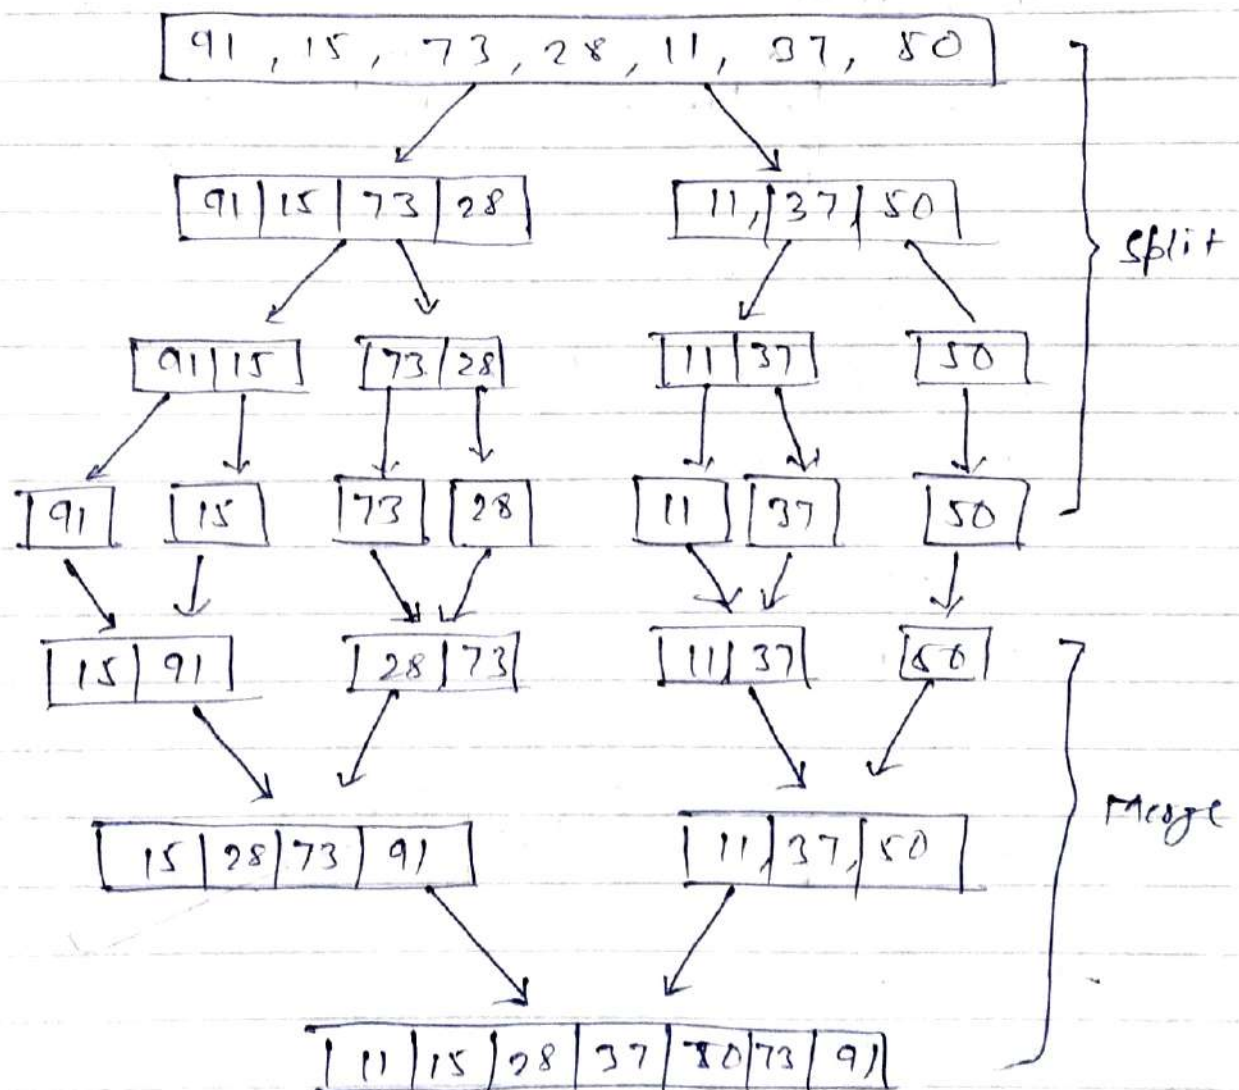 91, 15, 73, 28, 11, 37, 50
91 15 73 28 11, 37, 50
Split
91 15 73 28 11 37 50
91 15 73 28 11 37 50
15 91 28 73 11 37 50
Merge
15 28 73 91 11, 37, 50
11 15 28 37 50 73 91